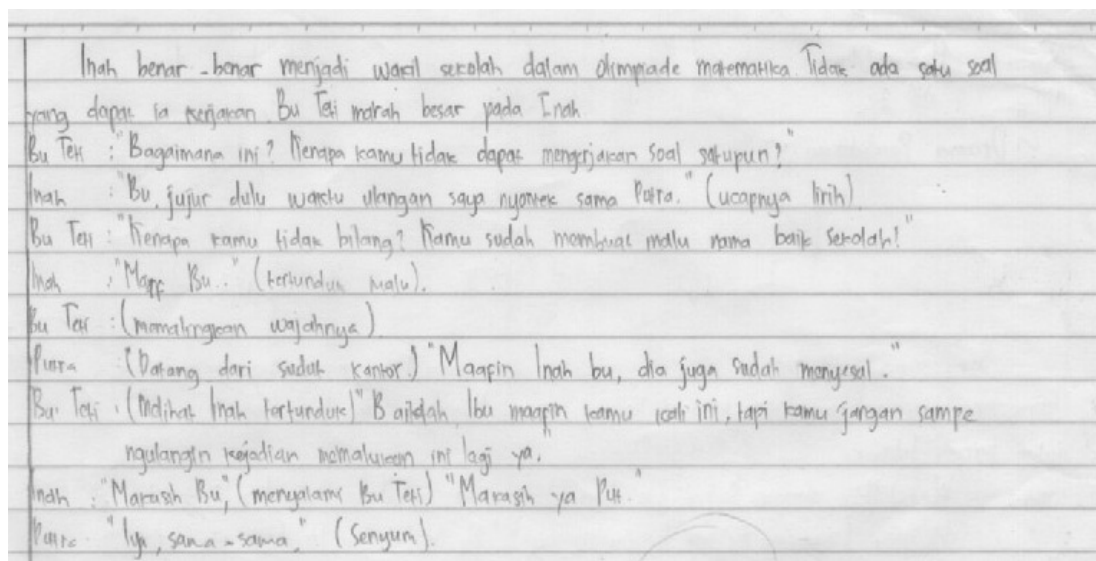 Inah benar-benar menjadi wakil sekolah dalam olimpiade matematika. Tidak ada satu soal
yang dapat ia kerjakan. Bu Teti marah besar pada Inah
Bu Teti : "Bagaimana ini? Kenapa kamu tidak dapat mengerjakan soal satupun?"
Inah : "Bu, jujur dulu waktu ulangan saya nyontek sama Putra." (ucapnya lirih)
Bu Teti : "Kenapa kamu tidak bilang? Kamu sudah membuat malu nama baik sekolah!"
Inah : "Maaf Bu.." (tertunduk malu).
Bu Teti : (memalingkan wajahnya)
Putra : (Datang dari sudut kantor) "Maafin Inah bu, dia juga sudah menyesal."
Bu Teti : (melihat Inah tertunduk) "Baiklah Ibu maafin kamu kali ini, tapi kamu jangan sampe
ngulangin kejadian memalukan ini lagi ya."
Inah : "Makasih Bu", (menyalami Bu Teti) "Makasih ya Put."
Putra "Iya, sama-sama," (Senyum).